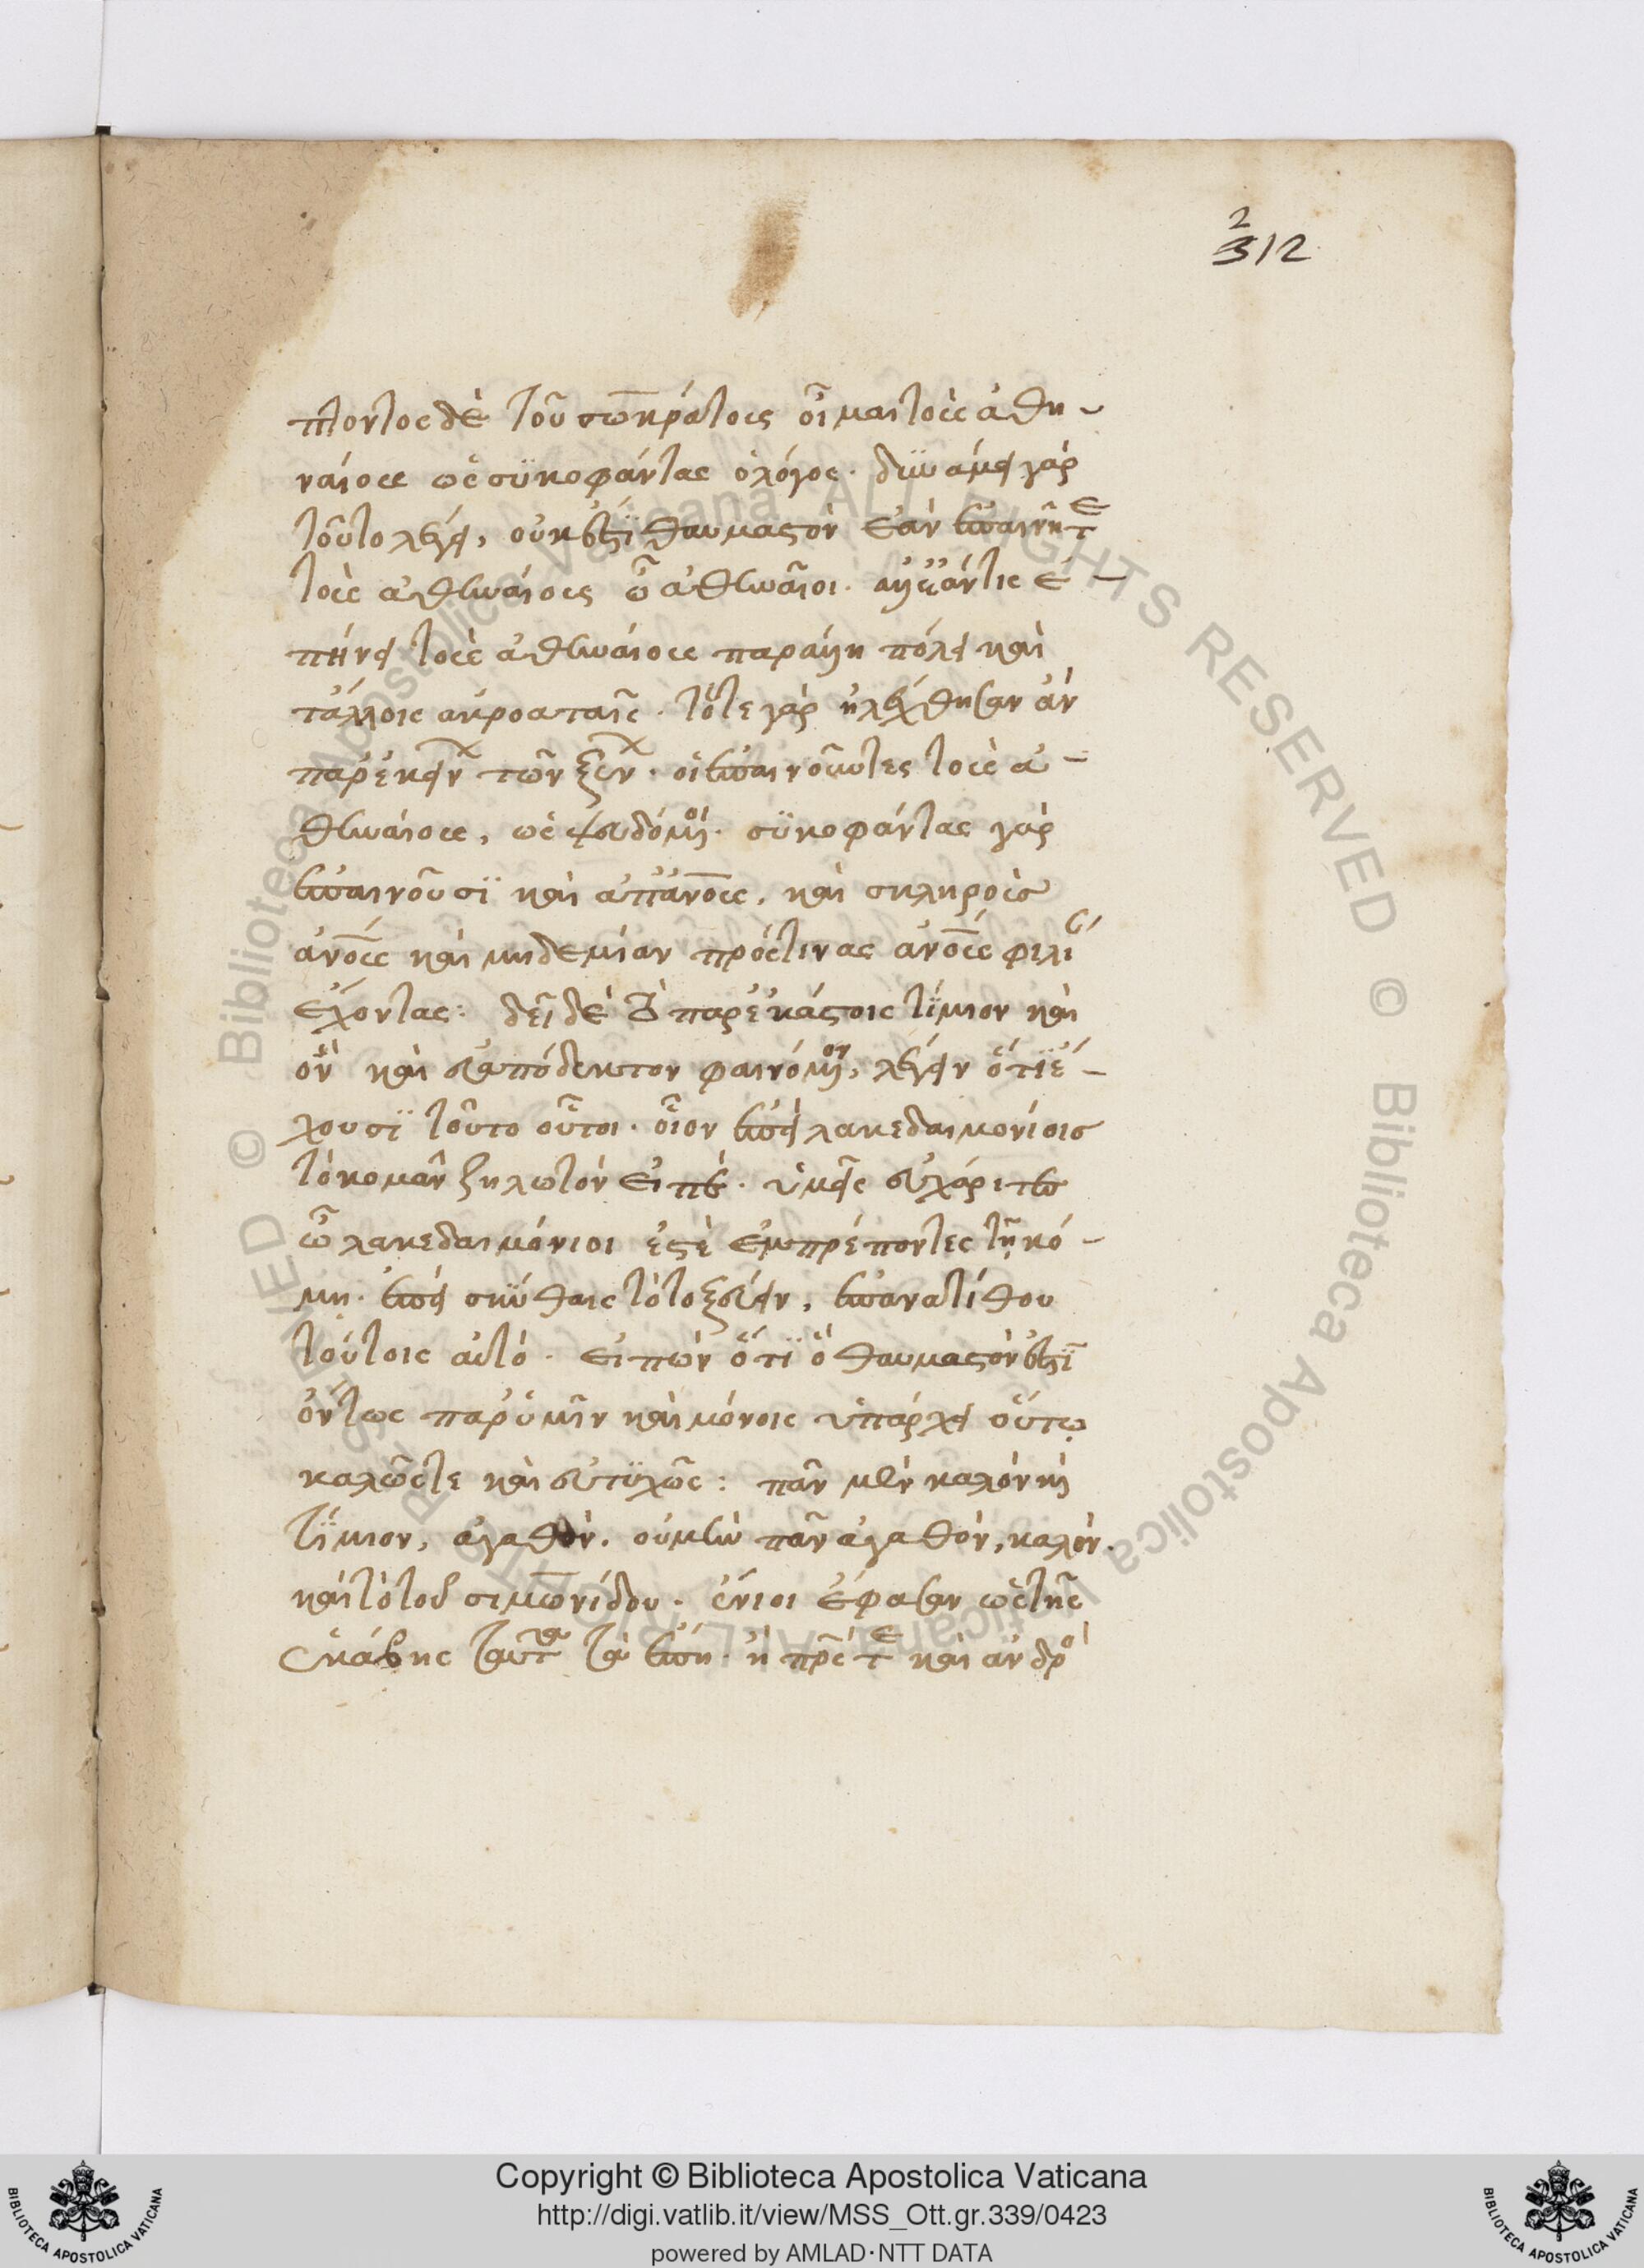 2
312
πτοντος δὲ τοῦ σωκράτους οἶμαι τοὺς ἀθη-
ναίους ὡς συκοφάντας ὁ λόγος. δυνάμει γὰρ
τοῦτο λέγει, οὐκ ἔστι θαυμαστὸν ἐὰν ἐπαινῆτε
τοὺς ἀθηναίους ὦ ἀθηναῖοι.
πήνει τοὺς ἀθηναίους παρ' πόλει καὶ
τἄλλοις ἀκροαταῖς. τότε γὰρ ἠλέχθησαν ἂν
παρ' ἐκείνων τῶν ξένων. οἱ ἐπαινοῦντες τοὺς ἀ-
θηναίους, ὡς ψευδόμενοι. συκοφάντας γὰρ
ἐπαινοῦσι καὶ ἀπανους, καὶ σκληροὺς
ἀνους καὶ μηδεμίαν πρός τινας ἀνους φιλί
ἔχοντας: δεῖ δὲ τὸ παρ' ἑκάστοις τίμιον καὶ
ὂν καὶ εὐαπόδεκτον φαινόμενον, λέγειν ὅτι ἔ-
χουσι τοῦτο οὗτοι. οἷον ἐπεὶ λακεδαιμονίοις
τὸ κομᾶν ζηλωτὸν εἰπὲ. ὑμεῖς εὐχάριτες
ὦ λακεδαιμόνιοι ἐστὲ ἐμπρέποντες τῇ κό-
μῃ. ἐπεὶ σκύθαις τὸ τοξεύειν, ἐπανατίθου
τούτοις αὐτό. εἰπὼν ὅτι ὃ θαυμαστὸν ἐστὶ
ὄντως παρ' ὑμῖν καὶ μόνοις ὑπάρχει οὕτω
καλῶς τε καὶ εὐτυχῶς: πᾶν μὲν καλὸν καὶ
τίμιον, ἀγαθὸν. οὐ μὴν πᾶν ἀγαθόν, καλόν.
καὶ τὸ τοῦ σιμωνίδου. ἔνιοι ἔφασαν ὡς τῆς
ἑκάβης ταῦτα τὰ ἔπη. ἡ πρός τε καὶ ἀνδρο
Copyright © Biblioteca Apostolica Vaticana
http://digi.vatlib.it/view/MSS_Ott.gr.339/0423
powered by AMLAD·NTT DATA